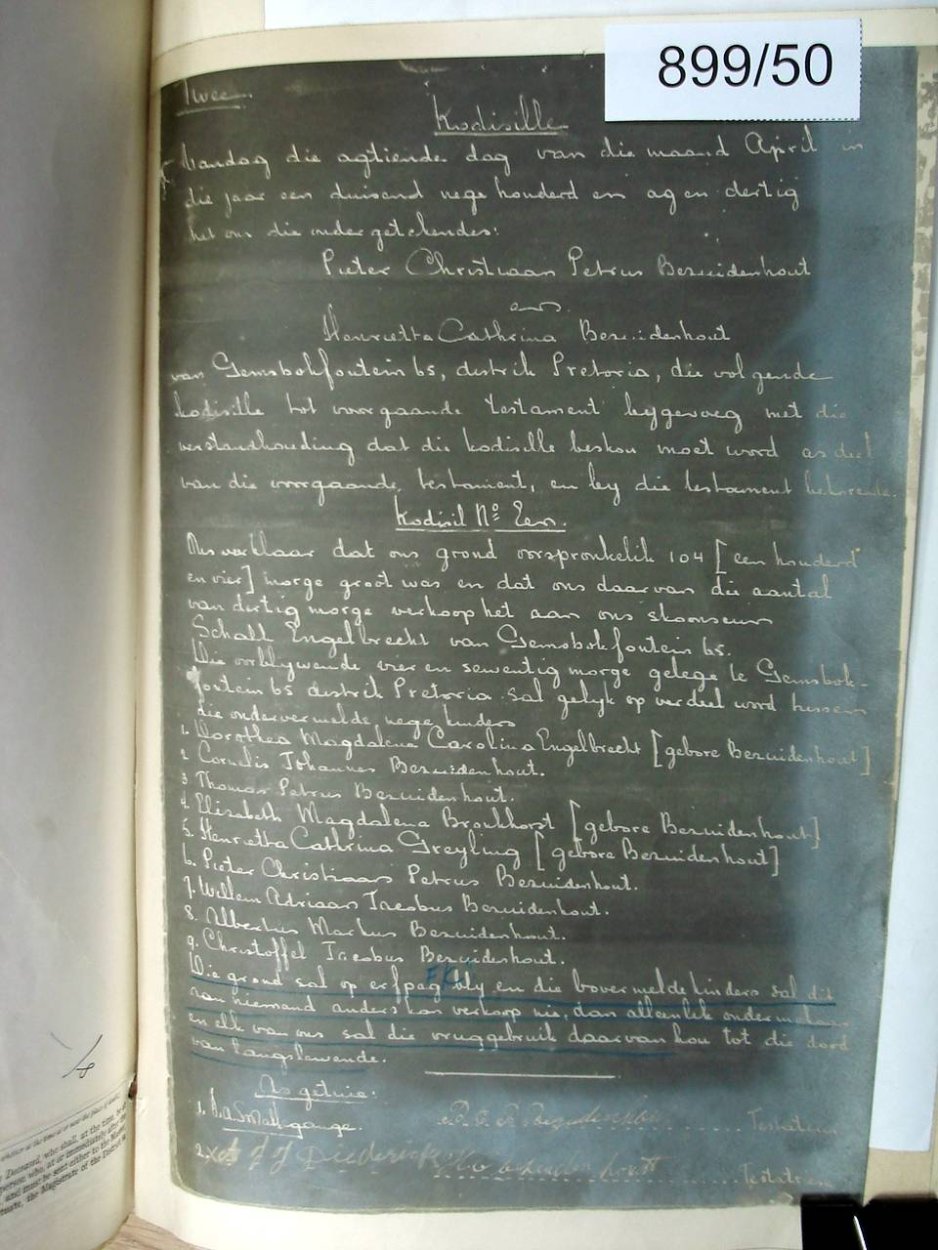 899/50
Twee.
Kodisille
Vandag die agtiende dag van die maand April in
die jaar een duisend nege honderd en ag en dertig
het ons die ondergetekendes:
Pieter Christiaan Petrus Bezuidenhout
en
Henrietta Cathrina Bezuidenhout
van Gemsbokfontein 65, distrik Pretoria, die volgende
kodisille tot voorgaande testament bygevoeg met die
verstandhouding dat die kodisille beskou moet word as deel
van die voorgaande testament, en by die testament behorende.
Kodisil No. Een.
Ons verklaar dat ons grond oorspronkelik 104 [een honderd
en vier] morge groot was en dat ons daarvan die aantal
van dertig morge verkoop het aan ons skoonseun
Schalk Engelbrecht van Gemsbokfontein 65.
Die oorblywende vier en sewentig morge gelege te Gemsbok-
fontein 65 distrik Pretoria sal gelyk op verdeel word tussen
die ondervermelde nege kinders
1. Dorothea Magdalena Carolina Engelbrecht [gebore Bezuidenhout]
2 Cornelis Johannes Bezuidenhout.
3 Thomas Petrus Bezuidenhout.
4. Elizabeth Magdalena Bronkhorst [gebore Bezuidenhout]
5. Henrietta Cathrina Greyling [gebore Bezuidenhout]
6. Pieter Christiaan Petrus Bezuidenhout.
7. Willem Adriaan Jacobus Bezuidenhout.
8. Albertus Markus Bezuidenhout.
9. Christoffel Jacobus Bezuidenhout.
Die grond sal op erfpag bly en die bovermelde kinders sal dit
aan niemand anders kan verkoop nie, dan alleenlik onder mekaar
en elk van ons sal die vruggebruik daarvan hou tot die dood
van langslewende.
As getuie:
1. Testateur
2. J J Diederick Testatrise